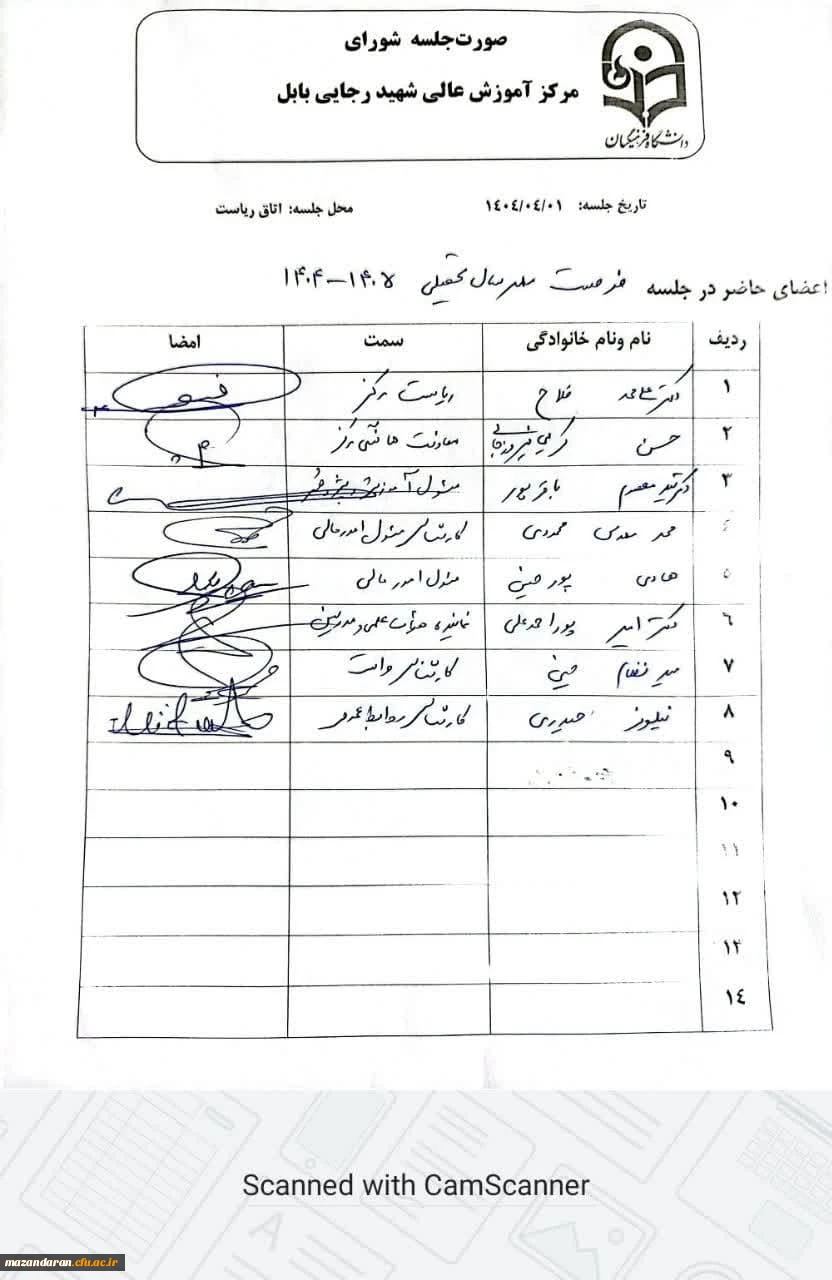 صورت‌جلسه شورای
مرکز آموزش عالی شهید رجایی بابل
دانشگاه فرهنگیان
تاریخ جلسه: ۱۴۰۴/۰۴/۰۱ محل جلسه: اتاق ریاست
اعضای حاضر در جلسه فرصت سال تحصیلی ۱۴۰۵-۱۴۰۴
ردیف نام ونام خانوادگی سمت امضا
۱ دکتر فلاح ریاست مرکز
۲ حسن معاونت مرکز
۳ دکتر سید معصوم باقرپور مسئول آموزش
۴ محمد مهدی محمودی کارشناس مسئول امور مالی
۵ هادی پور حسینی مسئول امور مالی
۶ دکتر امیر پور احمد علی نماینده هیئت علمی و مدرسین
۷ سید نظام حسینی کارشناس حراست
۸ نیلوفر حیدری کارشناس روابط عمومی
۹
۱۰
۱۱
۱۲
۱۳
۱۴
Scanned with CamScanner
mazandaran.cfu.ac.ir